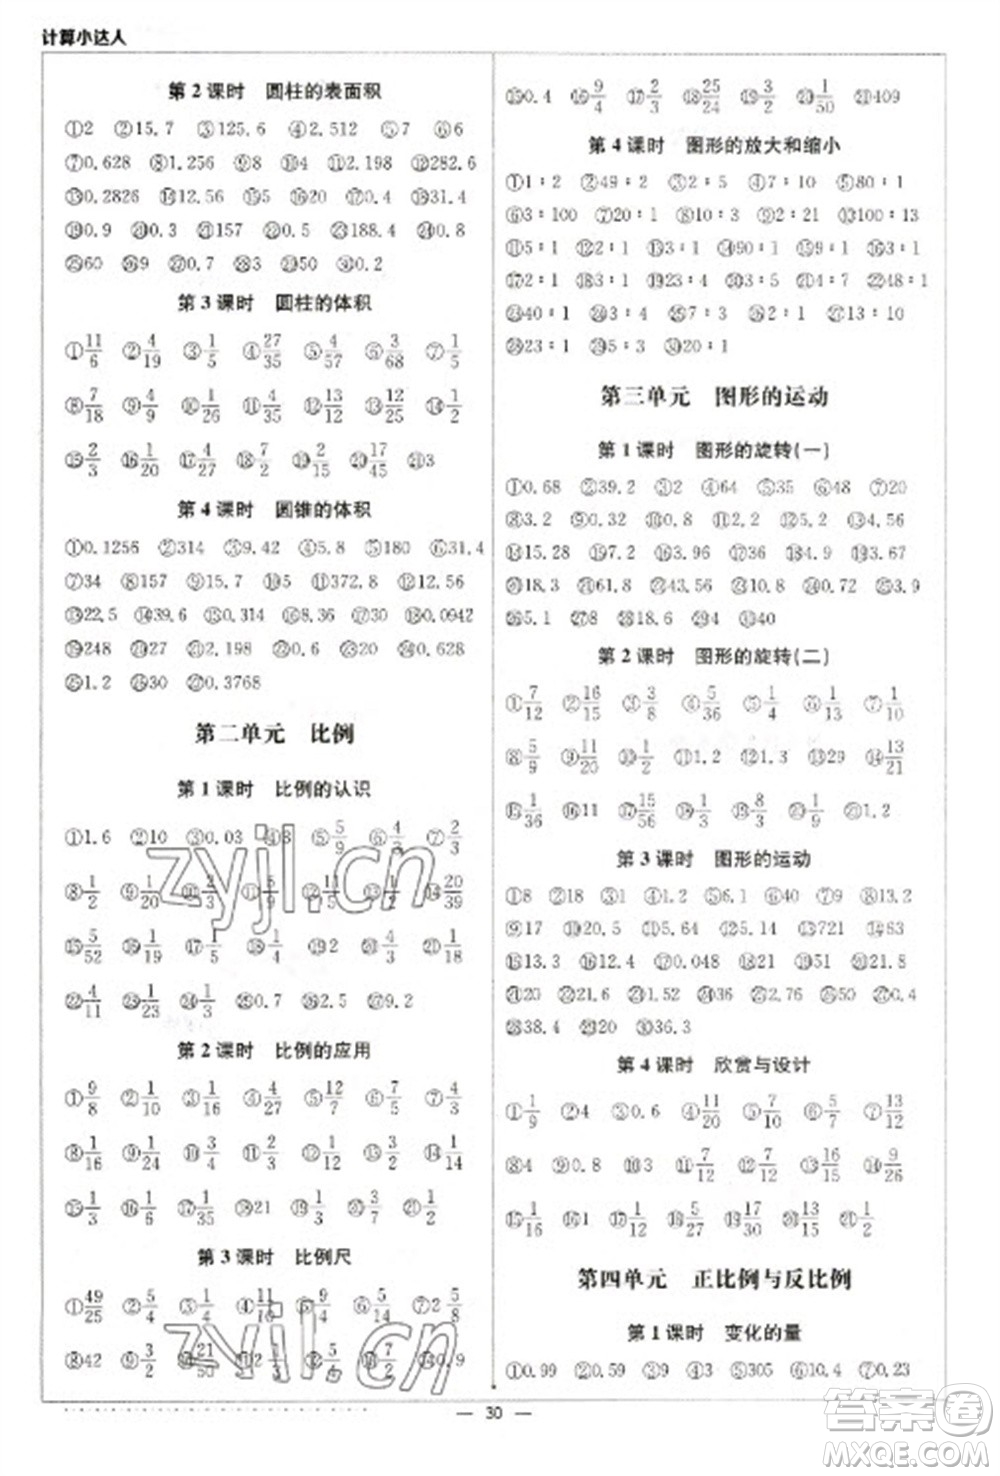 计算小达人
第 2 课时 圆柱的表面积
①2 ②15.7 ③125.6 ④2.512 ⑤7 ⑥6
⑦0.628 ⑧1.256 ⑨8 ⑩4 ⑪2.198 ⑫282.6
⑬0.2826 ⑭12.56 ⑮5 ⑯20 ⑰4 ⑱31.4
⑲0.9 ⑳0.3 ㉑157 ㉒0.5 ㉓188.4 ㉔0.8
㉕60 ㉖9 ㉗0.7 ㉘3 ㉙50 ㉚0.2
第 3 课时 圆柱的体积
①11/6 ②4/19 ③1/5 ④27/35 ⑤4/57 ⑥3/68 ⑦1/5
⑧7/18 ⑨4/9 ⑩1/26 ⑪4/35 ⑫13/12 ⑬12/25 ⑭1/2
⑮2/3 ⑯1/20 ⑰4/27 ⑱7/2 ⑲2/15 ⑳17/45 ㉑3
第 4 课时 圆锥的体积
①0.1256 ②314 ③9.42 ④5.8 ⑤180 ⑥31.4
⑦34 ⑧157 ⑨9 ⑩10 ⑪372.8 ⑫12.56
⑬22.5 ⑭39.6 ⑮0.314 ⑯8.36 ⑰30 ⑱0.0942
⑲248 ⑳27 ㉑2.198 ㉒0.6 ㉓40 ㉔0.628
㉕1.2 ㉖30 ㉗0.3768
第二单元 比例
第 1 课时 比例的认识
①1.6 ②10 ③0.03 ④8 ⑤5/9 ⑥4/3 ⑦2/3
⑧1/2 ⑨1/20 ⑩2/3 ⑪5/9 ⑫1/2 ⑬4/5 ⑭20/39
⑮5/52 ⑯1/19 ⑰1/5 ⑱1/4 ⑲2 ⑳4/3 ㉑1/18
㉒4/11 ㉓1/23 ㉔1/3 ㉕0.7 ㉖2.5 ㉗9.2
第 2 课时 比例的应用
①9/8 ②1/10 ③1/16 ④4/27 ⑤12/7 ⑥5/6 ⑦4/9
⑧1/16 ⑨1/24 ⑩3/4 ⑪2/3 ⑫1/12 ⑬4/5 ⑭1/14
⑮1/3 ⑯1/6 ⑰1/35 ⑱21 ⑲1/10 ⑳3/7 ㉑6/5
第 3 课时 比例尺
①49/25 ②5/4 ③1/4 ④11/16 ⑤9/4 ⑥5/14 ⑦2 5/8
⑧42 ⑨1/2 ⑩21/50 ⑪2 1/3 ⑬7/4 ⑭0.9
⑮0.4 ⑯9/4 ⑰2/3 ⑱25/24 ⑲3/2 ⑳1/50 ㉑409
第 4 课时 图形的放大和缩小
①1∶2 ②49∶2 ③2∶5 ④7∶10 ⑤80∶1
⑥3∶100 ⑦20∶1 ⑧5∶2 ⑨3∶2 ⑩100∶13
⑪5∶1 ⑫2∶1 ⑬50∶1 ⑭90∶1 ⑮9∶1 ⑯6∶1
⑰2∶1 ⑱3∶1 ⑲23∶4 ⑳3∶5 ㉑4∶7 ㉒48∶1
㉓40∶1 ㉔5∶4 ㉕8∶9 ㉖2∶1 ㉗4∶9
㉘23∶1 ㉙5∶4 ㉚20∶1
第三单元 图形的运动
第 1 课时 图形的旋转(一)
①0.68 ②39.2 ③2 ④64 ⑤35 ⑥48 ⑦20
⑧3.2 ⑨90 ⑩0.8 ⑪2.2 ⑫5.2 ⑬4.56
⑭15.28 ⑮7.2 ⑯3.96 ⑰36 ⑱0.55 ⑲1.2
⑳18.3 ㉑61.8 ㉒3.6 ㉓10 ㉔0.72 ㉕3.9
㉖5.1 ㉗8 ㉘18.6 ㉙4 ㉚40
第 2 课时 图形的旋转(二)
①7/12 ②16/15 ③3/8 ④5/36 ⑤1/4 ⑥1/13 ⑦1/10
⑧5/9 ⑨11/20 ⑩1/2 ⑪1.2 ⑫1 ⑬29 ⑭13/21
⑮1/36 ⑯11 ⑰15/56 ⑱1/3 ⑲8/3 ⑳1/9 ㉑1.2
第 3 课时 图形的运动
①8 ②18 ③1 ④1.2 ⑤6.1 ⑥9 ⑦9 ⑧13.2
⑨17 ⑩20.5 ⑪5.6 ⑫5.14 ⑬721 ⑭63
⑮13.3 ⑯12 ⑰0.048 ⑱20 ⑲21.8
㉑20 ㉒21.6 ㉓1.52 ㉔36 ㉕2.76 ㉖50 ㉗0.4
㉘38.4 ㉙50 ㉚36.3
第 4 课时 欣赏与设计
①1/9 ②4 ③0.6 ④11/20 ⑤7/10 ⑥5/7 ⑦13/12
⑧4 ⑨0.8 ⑩3 ⑪7/12 ⑫7/12 ⑬16/15 ⑭9/26
⑮1/16 ⑯1 ⑰1/12 ⑱5/27 ⑲20/17 ⑳13/15 ㉑1/2
第四单元 正比例与反比例
第 1 课时 变化的量
①0.99 ②0.59 ③9 ④3 ⑤305 ⑥10.4 ⑦0.23
— 30 —
zyjl.cn
zyjl.cn
答案圈
MXQE.COM